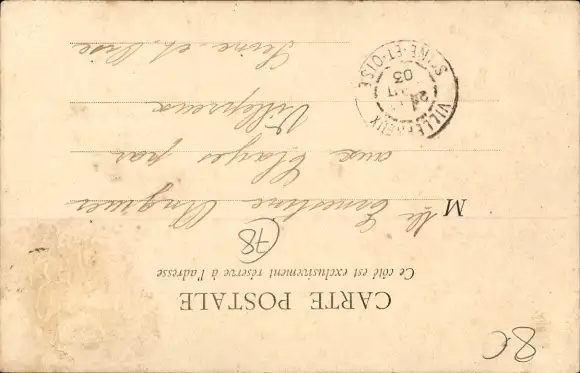 CARTE POSTALE
Ce côté est exclusivement réservé à l'adresse
(78)
Mlle Ernestine
aux Clayes par
Villepreux
Seine et Oise
VILLEPREUX
SNE-ET-OISE
03
8C